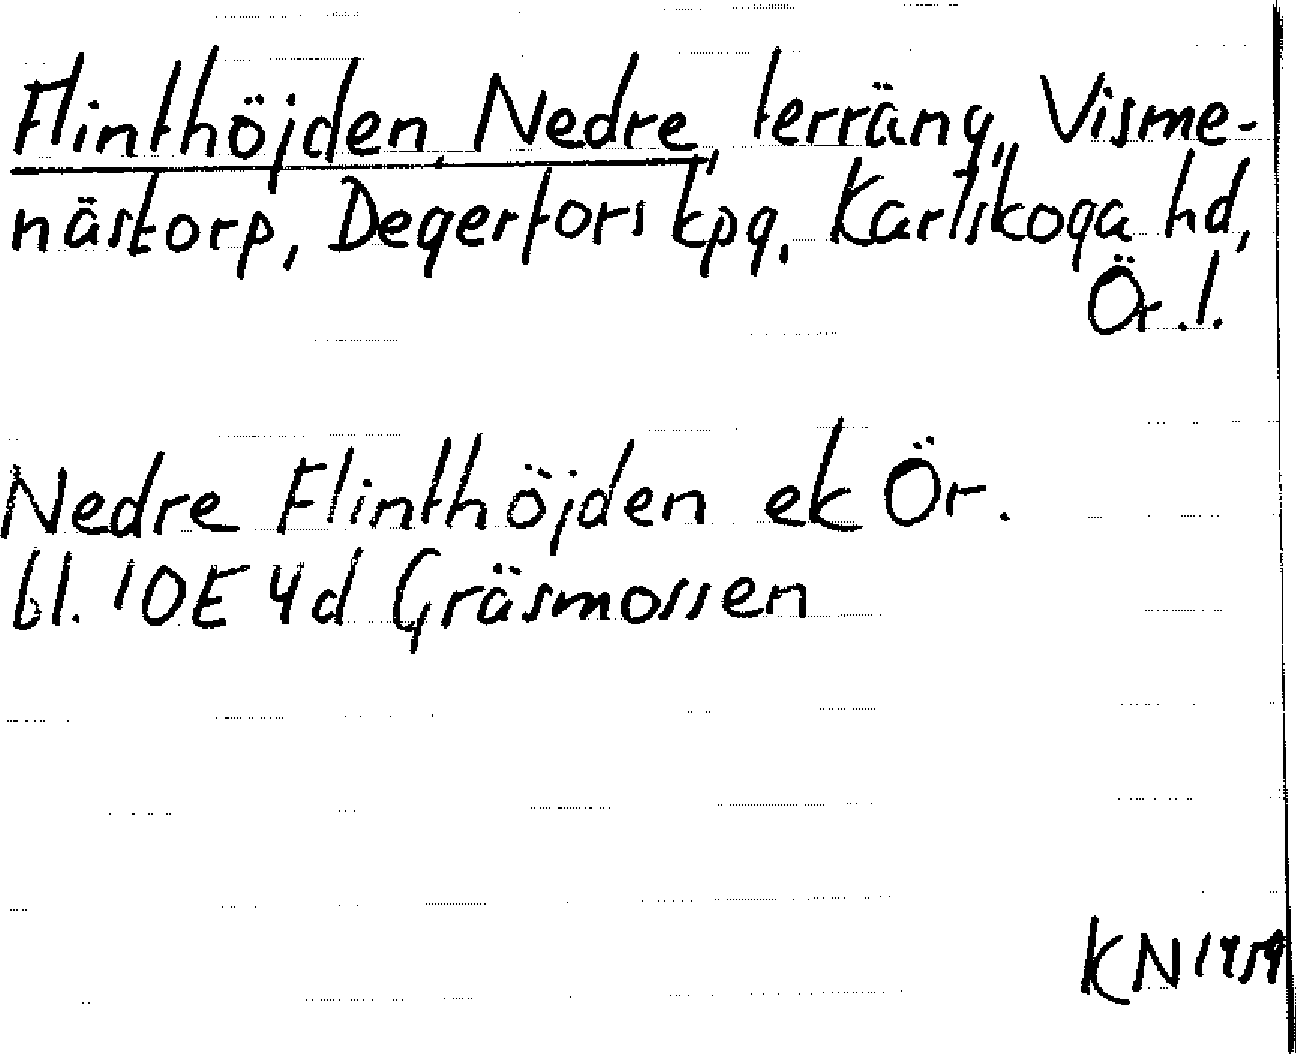 Flinthöjden, Nedre, terräng, Visme-
nästorp, Degerfors kpg, Karlskoga hd,
Ör. l.
Nedre Flinthöjden ek Ör.
bl. 10E 4d Gräsmossen
KN 1959